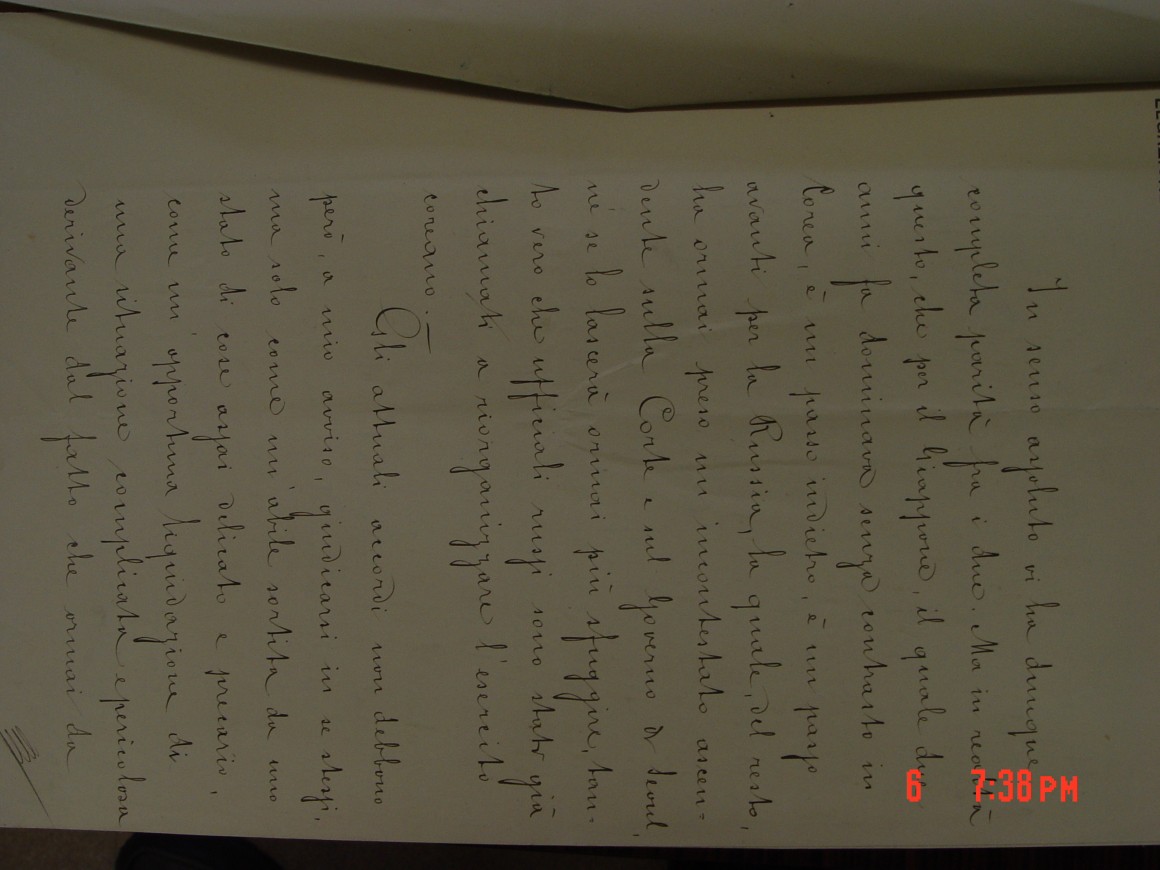 In senso assoluto vi ha dunque
completa parità fra i due. Ma in realtà
questo, che per il Giappone, il quale due
anni fa dominava senza contrasto in
Corea, è un passo indietro, è un passo
avanti per la Russia, la quale, del resto,
ha ormai preso un incontestato ascen-
dente sulla Corte e sul Governo di Seoul,
nè se lo lascerà ormai più sfuggire, tan-
to vero che ufficiali russi sono stati già
chiamati a riorganizzare l'esercito
coreano.—
Gli attuali accordi non debbono
però, a mio avviso, giudicarsi in se stessi,
ma solo come un'abile sortita da uno
stato di cose assai delicato e precario,
come un'opportuna liquidazione di
una situazione complicata e pericolosa
derivante dal fatto che ormai da
6 7:38 PM